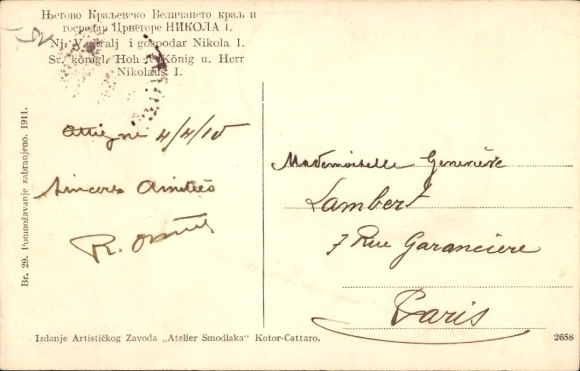 Његово Краљевско Величанство краљ и
господар Црнегоре НИКОЛА I.
Nj. V. kralj i gospodar Nikola I.
Sr. königl. Hoh. König u. Herr
Nikolaus I.
4/4/15
Sinceres Amitiés
R.
Mademoiselle Geneviève
Lambert
7 Rue Garancière
Paris
Br. 29. Pomnožavanje zabranjeno. 1911.
Izdanje Artističkog Zavoda „Atelier Smodlaka" Kotor-Cattaro.
2658